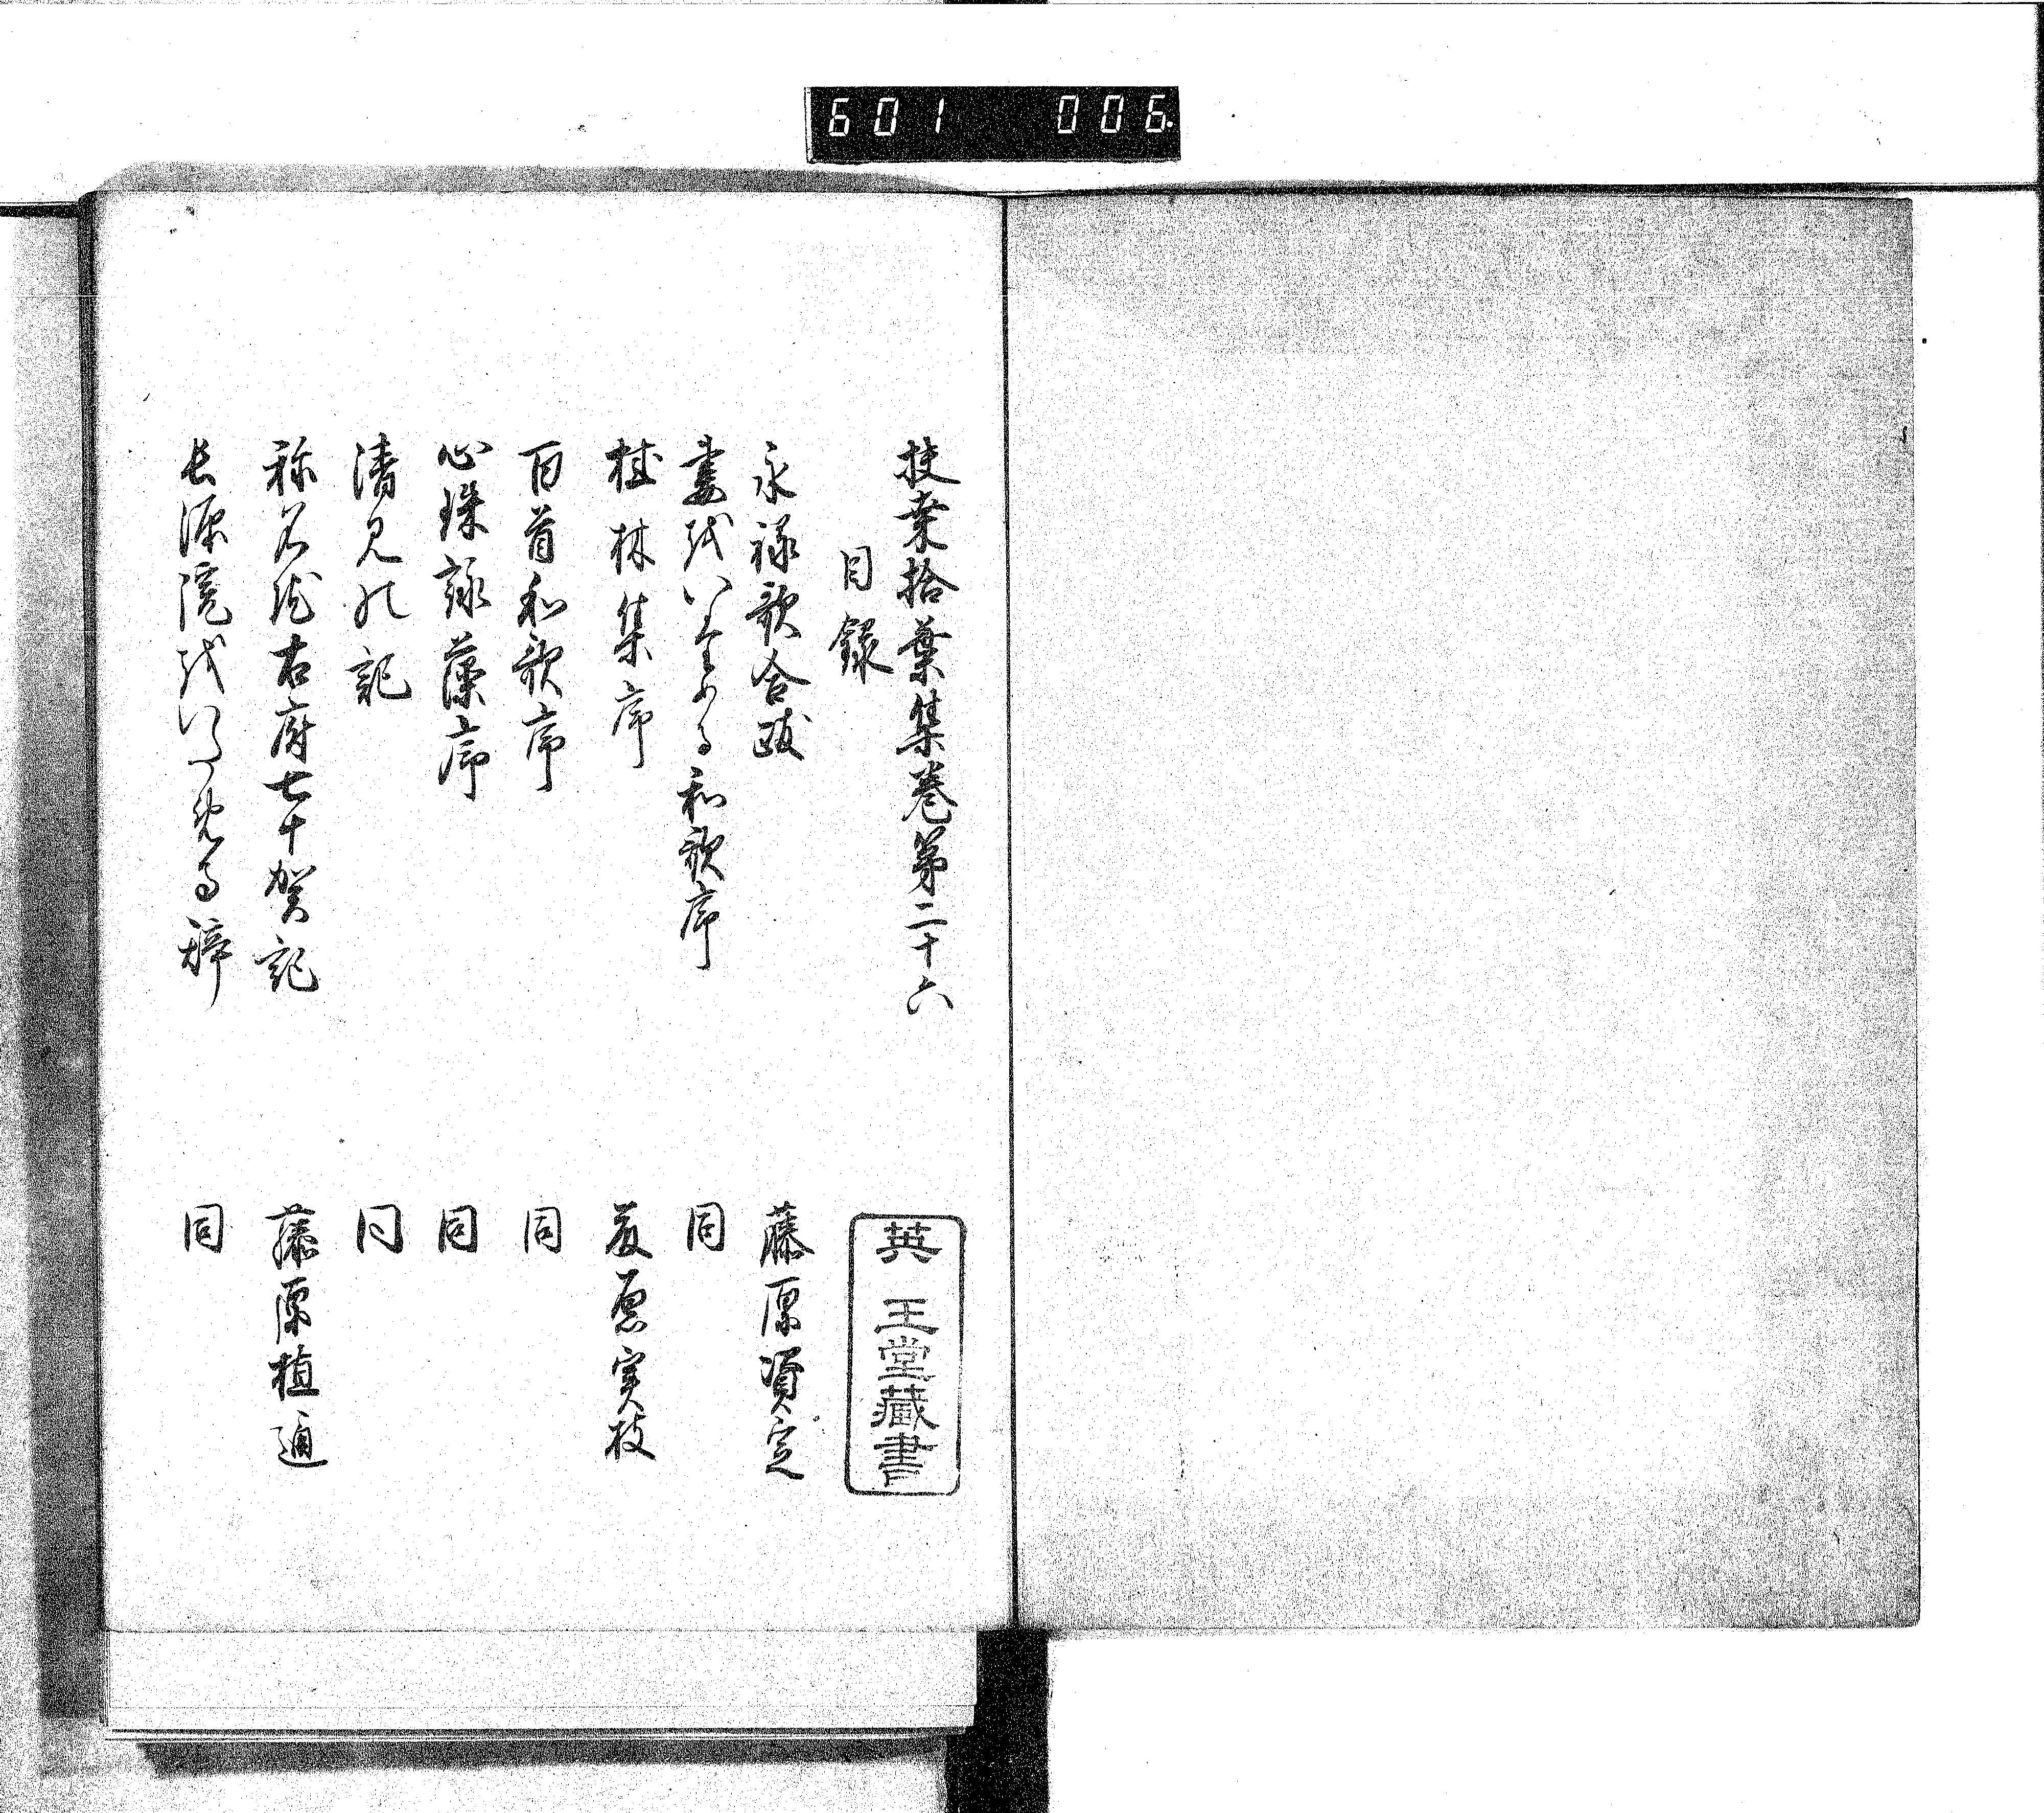 601 006
扶桒拾葉集巻第二十六
目録
永禄歌合跋 藤原資定
妻をいためる和歌序 同
桂林集序 藤原実枝
百首和歌序 同
心珠詠藻序 同
清見の記 同
称名院右府七十賀記 藤原植通
長源院をいためる辞 同
英 王堂蔵書